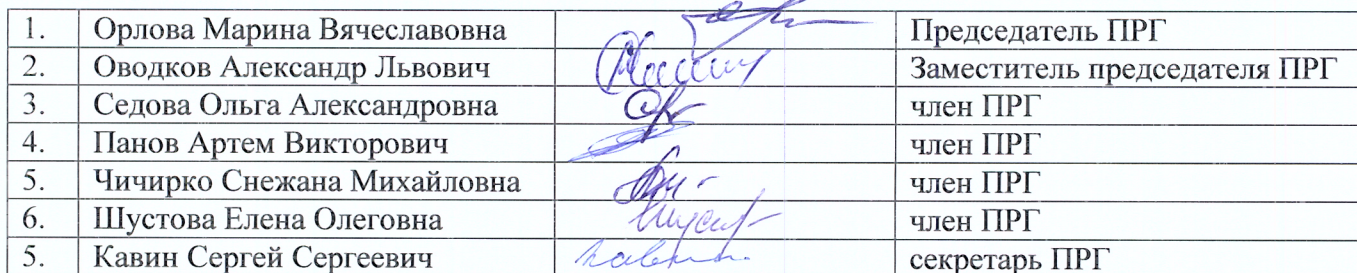 1. Орлова Марина Вячеславовна Председатель ПРГ
2. Оводков Александр Львович Заместитель председателя ПРГ
3. Седова Ольга Александровна член ПРГ
4. Панов Артем Викторович член ПРГ
5. Чичирко Снежана Михайловна член ПРГ
6. Шустова Елена Олеговна член ПРГ
5. Кавин Сергей Сергеевич секретарь ПРГ